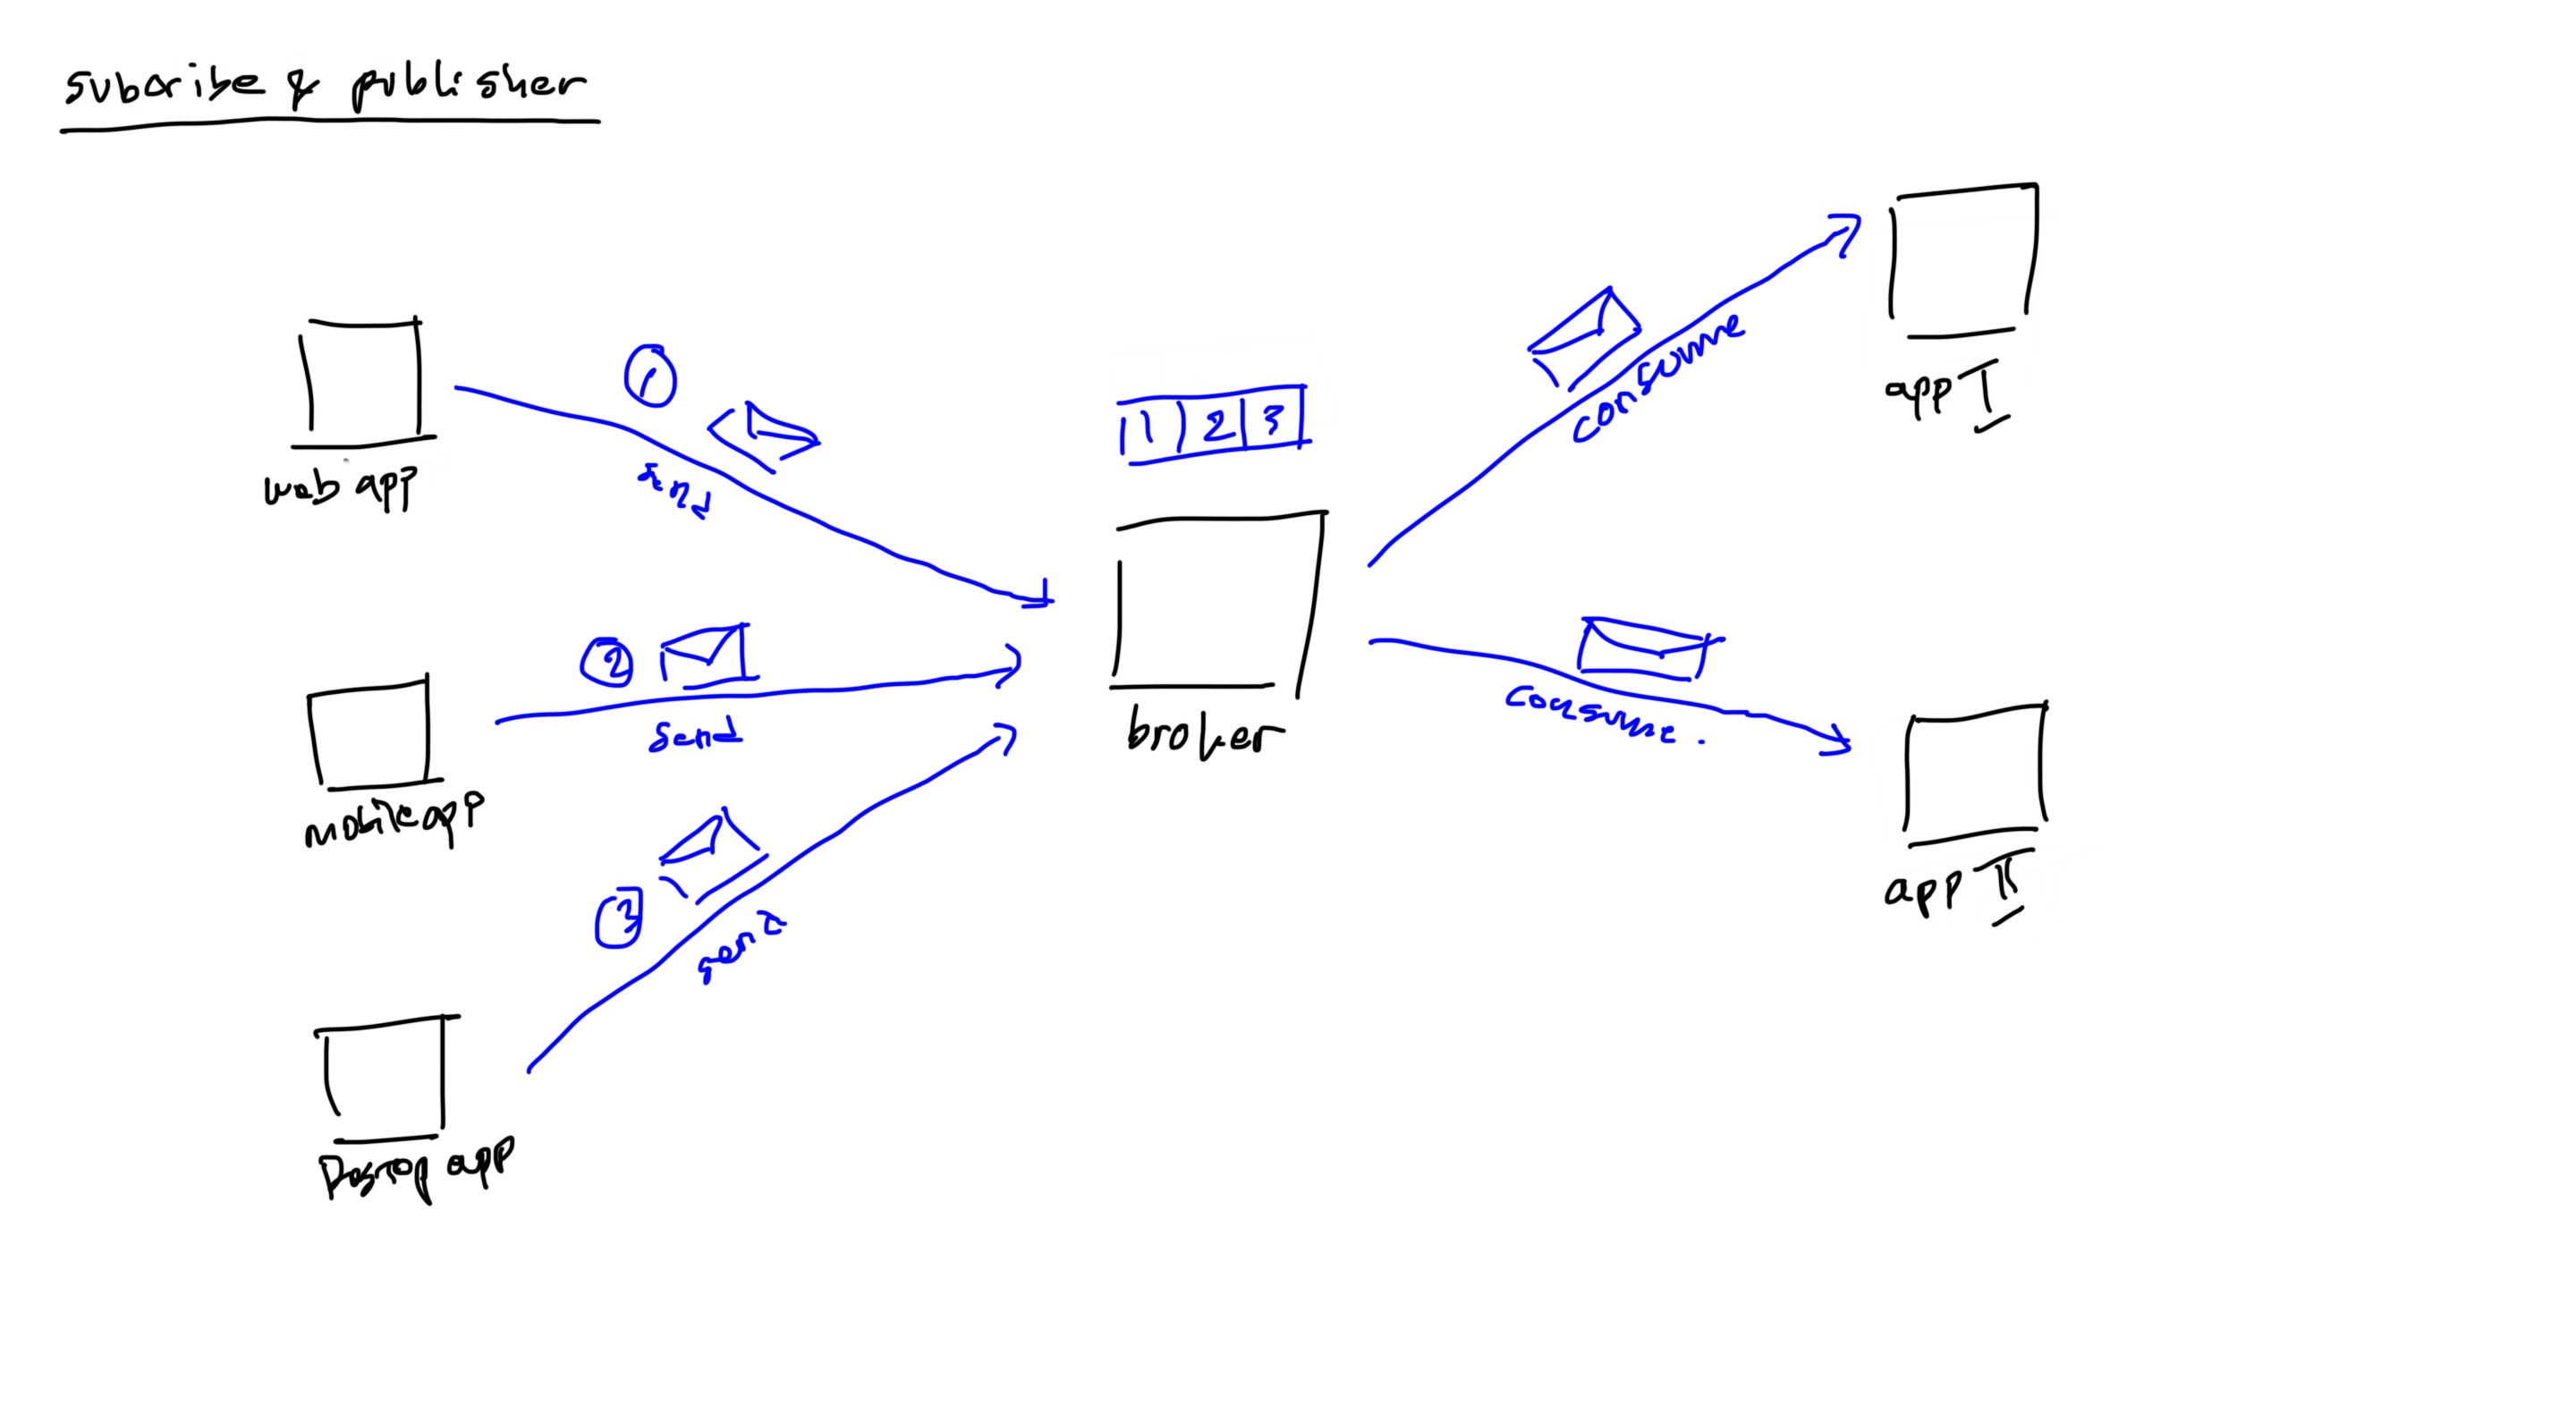 subcribe & publisher
web app
1
send
mobile app
2
send
3
send
app
1 2 3
broker
consume
app I
consume.
app II